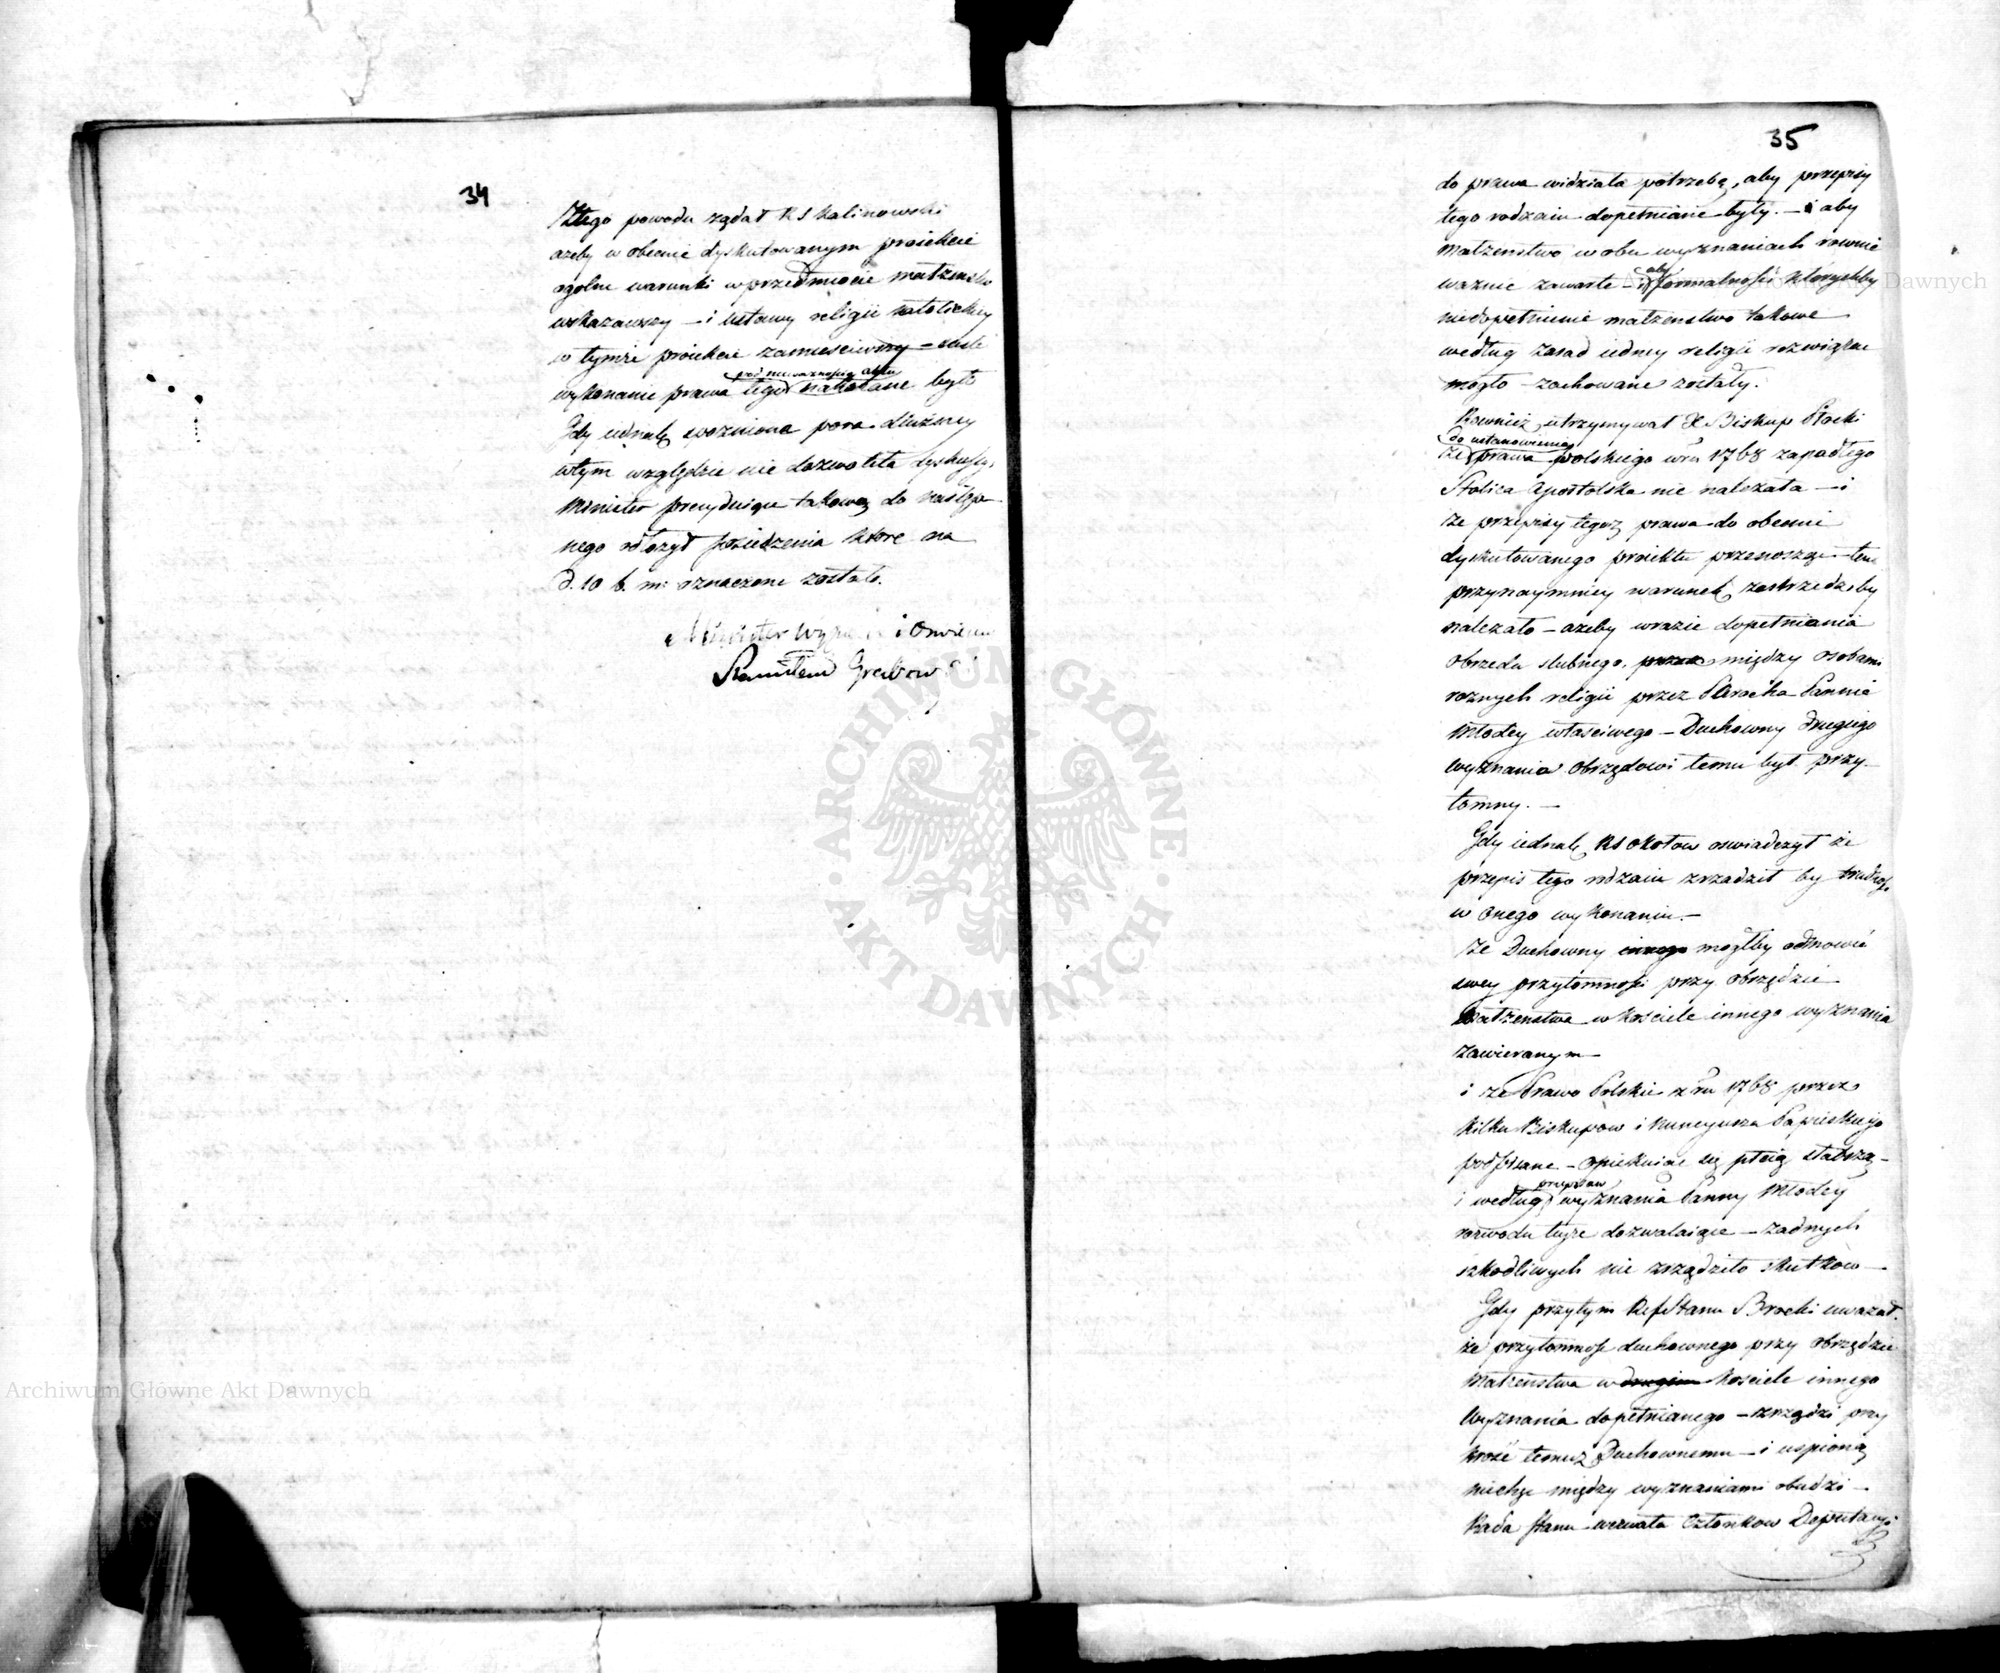 34
Z tego powodu rządał RS Kalinowski
azeby w obecnie dyskutowanym proiekcie
ogolne warunki w przedmiocie małzenstw
wskazawszy – i ustawy religii katolickiey
w tymże proiekcie zamieściwszy – scisłe
pod nieważnością aktu
wykonanie prawa tego nakazane było
Gdy iednak spozniona pora dłuzszey
w tym względzie nie dozwoliła dyskusyi,
Minister prezyduiący takową do następ
nego odłożył posiedzenia które na
d. 10 b. m: oznaczone zostało.
Minister Wyznań i Oświecenia
Stanisław Grabowski
35
do prawa widziała potrzebę, aby przepisy
tego rodzaiu dopełniane były. – i aby
małzenstwo w obu wyznaniach rownie
ważnie zawarte – i aby formalności którychby
niedopełnienie małzenstwo takowe
według zasad iedney religii rozwiązać
mogło – zachowane zostały.
Rownież utrzymywał X Biskup Płocki
do ustanowienia
że prawa polskiego w ru 1768 zapadłego
Stolica Apostolska nie należała – i
że przepisy tegoż prawa do obecnie
dyskutowanego proiektu przenosząc – ten
przynaymniey warunek zastrzedz by
należało – azeby w razie dopełniania
obrzędu slubnego, między osobami
roznych religii przez Parocha Pannie
Młodey własciwego – Duchowny drugiego
wyznania obrzędowi temu był przy-
tomny. –
Gdy iednak RS Okołow oswiadczył że
przepis tego rodzaiu zrządził by trudność
w onego wykonaniu. –
że Duchowny innego mogłby odmowić
swey przytomności przy obrzędzie
Małzenstwa w kościele innego wyznania
zawieranym –
i że Prawo Polskie z ru 1768 przez
kilku Biskupow i Nuncyusza Papieskiego
podpisane – opiekuiąc się płcią słabszą –
przepisow
i według wyznania Panny Młodey
rozwodu teyże dozwalaiące – żadnych
szkodliwych nie zrządziło skutkow –
Gdy przytym Ref Stanu Brocki uwazał
że przytomność duchownego przy obrzędzie
Małzenstwa w drugim kościele innego
Wyznania dopełnianego – zrządzi przy
krość temuż Duchownemu – i uspioną
niechęć między wyznaniami obudzi –
Rada Stanu wezwała Członkow Deputacyi